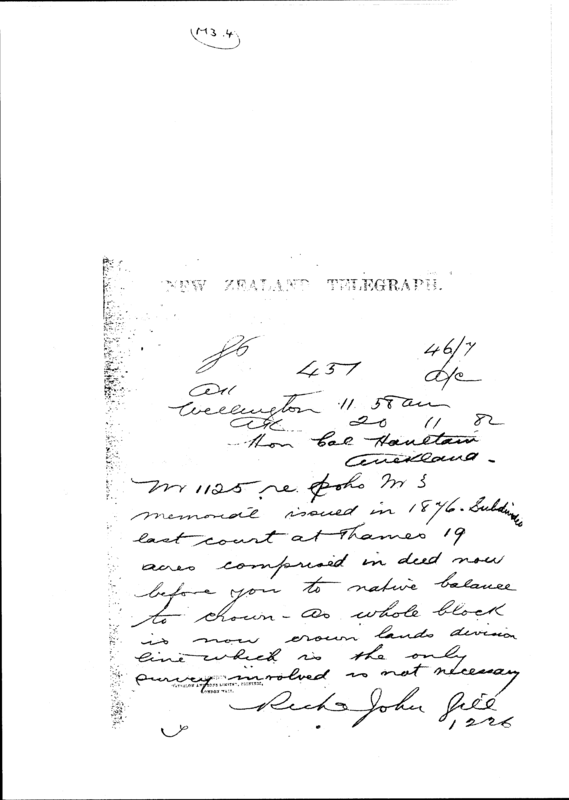 M3.4
NEW ZEALAND TELEGRAPH.
86
457
46/7
a/c
AK
Wellington 11 58 am
AK 20 11 82
Hon Col Haultain
Auckland -
Mr 1125 re Poho No 3
memorial issued in 1876. Subdivided
last court at Thames 19
acres comprised in deed now
before you to native balance
to crown - as whole block
is now crown lands division
line which is the only
survey involved is not necessary
LONDON WALL.
Richd John Gill
1226